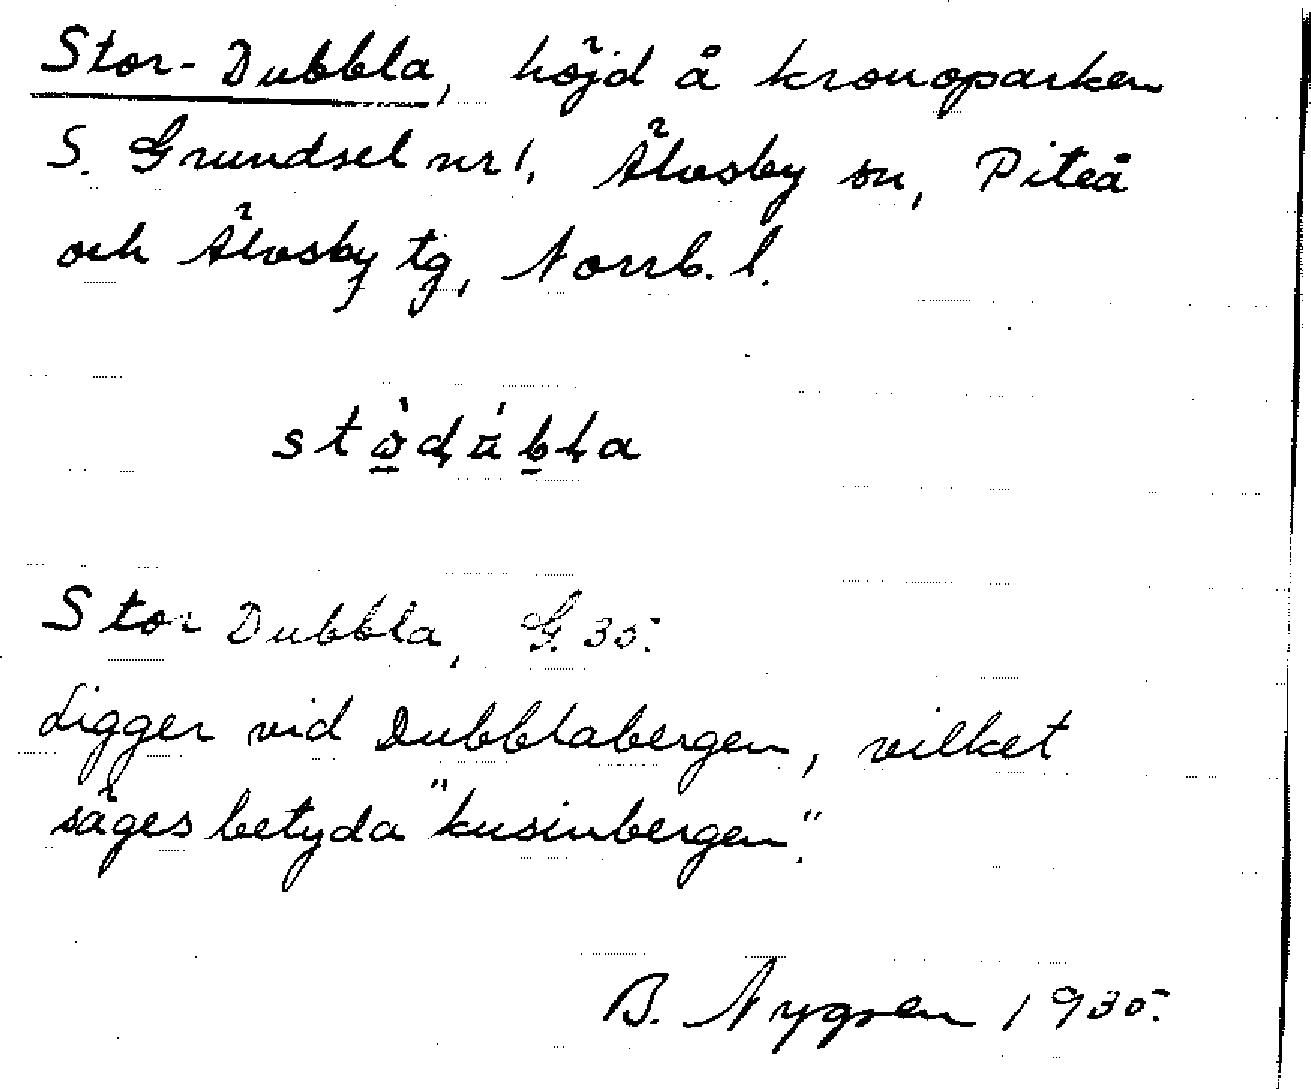 Stor-Dubbla, höjd å kronoparken
S. Grundsel nr 1, Älvsby sn, Piteå
och Älvsby tg, Norrb. l.
Stor Dubbla, G. 35.
Ligger vid Dubblabergen, vilket
säges betyda "kusinbergen".
B. Nygren 1935.